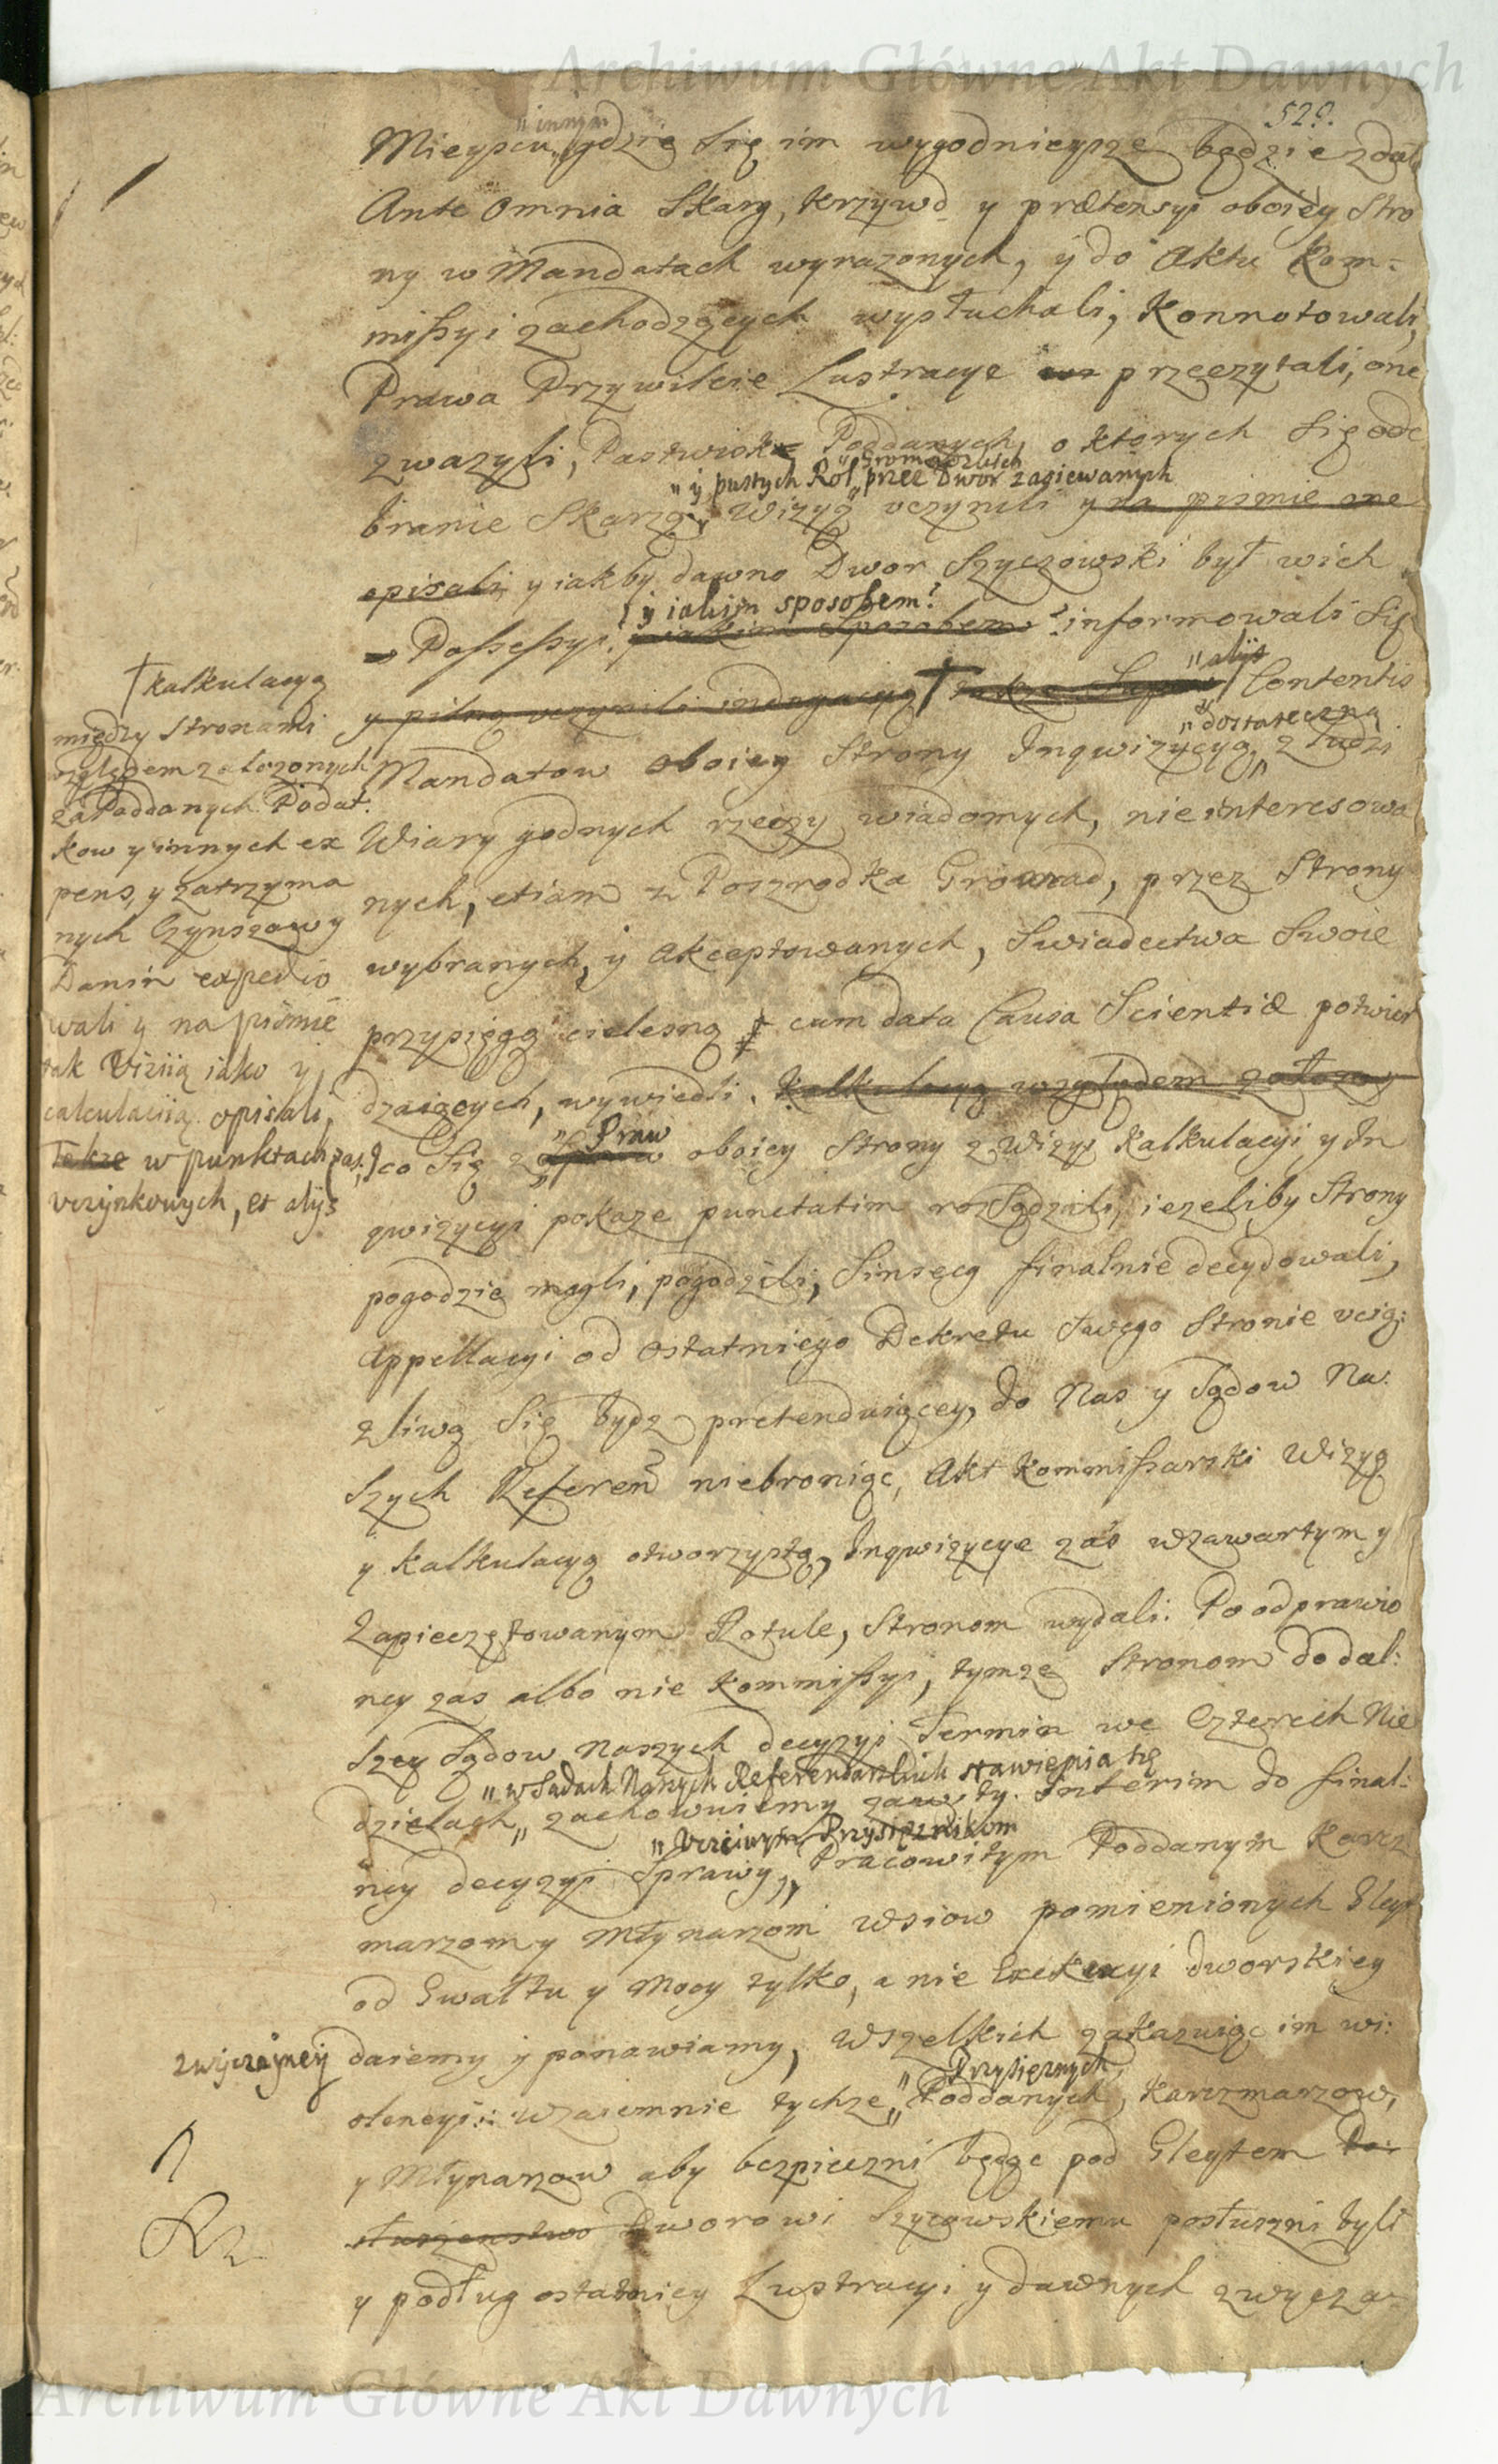 Archiwum Główne Akt Dawnych
529.
„innym
Mieyscu, gdzie Się im wygodnieysze będzie zdało
Ante omnia Skarg, krzywd y prætensyi oboiey Stro
ny w Mandatach wyrazonych, y do Aktu Kom-
missyi zachodzących wysłuchali, konnotowali,
Prawa Przywileie Lustracye przeczytali, one
zwazyli, Pastwisk Poddanych, o ktorych Się ode
„Gromadzkich
„y pustych Rol „przez Dwor zasiewanych
branie Skarzą, Wizyą uczynili y na pismie one
opisali, y iakby dawno Dwor Szyczowski był w ich
y iakim sposobem?
Possessyi, y iakim Sposobem? informowali Się
„alijs
y pilną uczynili indagacyą † także Super Contentis
„dostateczną
Mandatow oboiey Strony Inqwizycyą, z Ludzi
Wiary godnych rzeczy wiadomych, nie interesowa
nych, etiam z Poszrodka Gromad, przez Strony
wybranych, y akceptowanych, Swiadectwa Swoie
przysięgą cielesną cum data Causa Scientiæ potwier
dzaiących, wywiedli. Kalkulacyą względem załozoy
„Praw
co Się z Spraw oboiey Strony z Wizyi Kalkulacyi y In
qwizycyi pokaze punctatim rozSądzili, iezeliby Strony
pogodzic mogli, pogodzili, Sinsecg finalnie decydowali,
Appellacyi od ostatniego Dekretu Swego Stronie uciąz-
zliwą Się bydz pretenduiącey, do Nas y Sądow Na-
Szych Referen niebroniąc, Akt Kommissarski Wizyą
y kalkulacyą otworzystą, Inqwizycye zas w zawartym y
Zapieczętowanym Rotule, Stronom wydali. Po odprawio
ney zas albo nie Kommissyi, tymze Stronom do dal-
Szey Sądow naszych decyzyi Termin we Czterech Nie
„w Sadach Naszych Referendarskich stawienia się
dzielach „ zachowuiemy zawity. Interim do final-
„Uczciwym Przysięznikom
ney decyzyi Sprawy, „ Pracowitym Poddanym Karcz
marzom y Młynarzom wsiow pomienionych Gleyt
od Gwałtu y Mocy tylko, a nie Exekucyi dworskiey
zwyczayney
daiemy y ponawiamy, wszelkich zakazuiąc im wi-
„Przysięznych,
olencyi: wzaiemnie tychze „ Poddanych, karczmarzow,
y Młynarzow aby bezpieczni będąc pod Gleytem Po-
słuszenstwo Dworowi Szyczowskiemu posłuszni byli
y podług ostatniey Lustracyi y dawnych zwycza-
† kalkulacyą
między Stronami
względem załozonych
za Poddanych Podat-
kow y innych ex
pens, y zatrzyma
nych Czynszow y
Danin expedio
wali y na pismie
tak Viziią iako y
calculaciią opisali,
Takze w punktach zas
uczynkowych, et alijs
Archiwum Główne Akt Dawnych